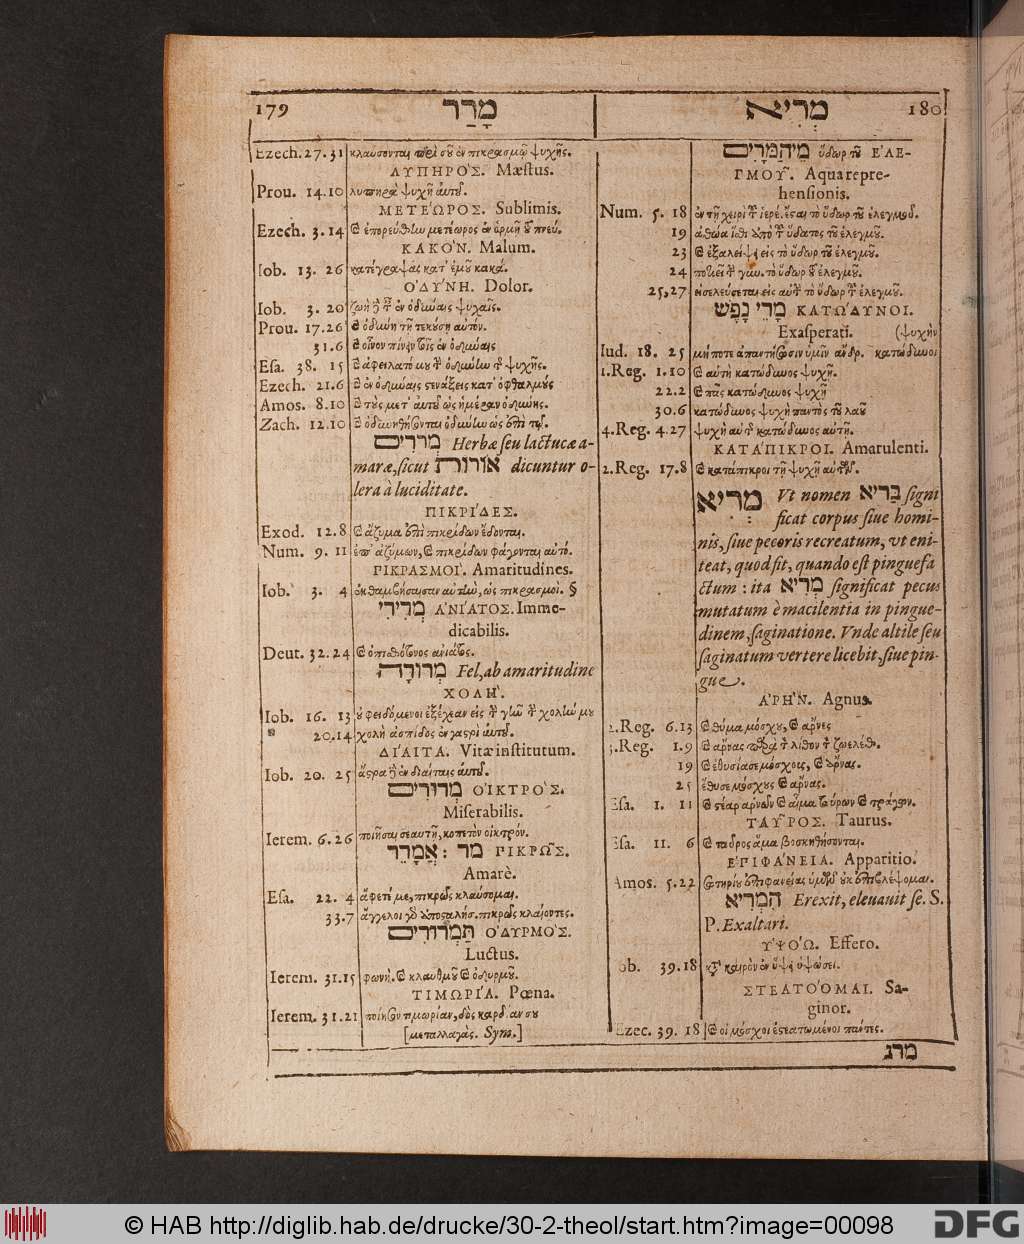 179 מָרַר
Ezech. 27. 31 κλαύσονται περὶ σοῦ ἐν πικρασμῷ ψυχῆς.
ΛΥΠΗΡΟ'Σ. Mæstus.
Prou. 14.10 λυπηρὰ ψυχῇ αὐτοῦ.
ΜΕΤΕ'ΩΡΟΣ. Sublimis.
Ezech. 3.14 καὶ ἐπορεύθην μετέωρος ἐν ὁρμῇ τοῦ πνεύ.
ΚΑΚΟ'Ν. Malum.
Iob. 13. 26 κατέγραψας κατ' ἐμοῦ κακά.
Ο'ΔΥ'ΝΗ. Dolor.
Iob. 3. 20 ζωὴ ἐν ὀδύναις ψυχαῖς.
Prou. 17.26 καὶ ὀδύνη τῇ τεκούσῃ αὐτόν.
31.6 καὶ οἶνον πίνειν τοῖς ἐν ὀδύναις
Esa. 38. 15 καὶ ἀφείλατό μου τὴν ὀδύνην τῆς ψυχῆς.
Ezech. 21.6 καὶ ἐν ὀδύναις στενάξεις κατ' ὀφθαλμοὺς
Amos. 8.10 καὶ τοὺς μετ' αὐτοῦ ὡς ἡμέραν ὀδύνης.
Zach. 12.10 καὶ ὀδυνηθήσονται ὀδύνην ὡς ἐπὶ
מררים Herbæ seu lactucæ a-
maræ, sicut אורות dicuntur o-
lera à luciditate.
ΠΙΚΡΙ'ΔΕΣ.
Exod. 12.8 καὶ ἄζυμα ἐπὶ πικρίδων ἔδονται.
Num. 9. 11 ἐπ' ἀζύμων, καὶ πικρίδων φάγονται αὐτό.
ΠΙΚΡΑΣΜΟΙ'. Amaritudines.
Iob. 3. 4 ἐκθαμβήσαισαν αὐτὴν, ὡς πικρασμοί. §
מְרִירִי Α'ΝΙ'ΑΤΟΣ. Imme-
dicabilis.
Deut. 32.24 καὶ ὀπισθότονος ἀνίατος.
מְרוֹרָה Fel, ab amaritudine
ΧΟΛΗ'.
Iob. 16. 13 οὐ φειδόμενοι ἐξέχεαν εἰς τὴν γῆν τὴν χολήν μου
20.14 χολὴ ἀσπίδος ἐν γαστρὶ αὐτοῦ.
ΔΙ'ΑΙΤΑ. Vitæ institutum.
Iob. 20. 25 ἄστρα ἐν διαίταις αὐτοῦ.
מְרוּרִים ΟΙ'ΚΤΡΟ'Σ.
Miserabilis.
Ierem. 6.26 ποίησαι σεαυτῇ, κοπετὸν οἰκτρόν.
מר : אֲמָרֵר ΠΙΚΡΩ῀Σ.
Amarè.
Esa. 22. 4 ἄφετέ με, πικρῶς κλαύσομαι.
33.7 ἄγγελοι γὰρ ἀποσταλήσ. πικρῶς κλαίοντες.
תַּמְרוּרִים Ο'ΔΥΡΜΟ'Σ.
Luctus.
Ierem. 31.15 φωνὴ. καὶ κλαυθμοῦ καὶ ὀδυρμοῦ.
ΤΙΜΩΡΙ'Α. Pœna.
Ierem. 31.21 ποίησον τιμωρίαν, δὸς καρδίαν σου
[μεταλλαγάς. Sym.]
מְרִיא 180
מֵיהַמָּרִים ὕδωρ τοῦ Ε'ΛΕ-
ΓΜΟΥ῀. Aqua repre-
hensionis.
Num. 5. 18 ἐν τῇ χειρὶ τοῦ ἱερέ. ἔσται τὸ ὕδωρ τοῦ ἐλεγμοῦ.
19 ἀθῶα ἴσθι ἀπὸ τοῦ ὕδατος τοῦ ἐλεγμοῦ.
23 καὶ ἐξαλείψει εἰς τὸ ὕδωρ τοῦ ἐλεγμοῦ.
24 ποτιεῖ τὴν γυν. τὸ ὕδωρ τοῦ ἐλεγμοῦ.
25,27 εἰσελεύσεται εἰς αὐτὴν τὸ ὕδωρ τοῦ ἐλεγμοῦ.
מָרֵי נָפֶשׁ ΚΑΤΩ'ΔΥΝΟΙ.
Exasperati. (ψυχὴν
Iud. 18. 25 μήποτε ἀπαντήσωσιν ὑμῖν ἄνδρ. κατώδυνοι
1.Reg. 1.10 καὶ αὐτὴ κατώδυνος ψυχῇ.
22.2 καὶ πᾶς κατώδυνος ψυχῇ
30.6 κατώδυνος ψυχὴ παντὸς τοῦ λαοῦ
4.Reg. 4.27 ψυχὴ αὐτῆς κατώδυνος αὐτῇ.
ΚΑΤΑ'ΠΙΚΡΟΙ. Amarulenti.
2.Reg. 17.8 καὶ κατάπικροι τῇ ψυχῇ αὐτῶν.
מְרִיא Vt nomen בָּרִיא signi
ficat corpus siue homi-
nis, siue pecoris recreatum, vt eni-
teat, quod sit, quando est pinguefa
ctum : ita מְרִיא significat pecus
mutatum è macilentia in pingue-
dinem, saginatione. Vnde altile seu
saginatum vertere licebit, siue pin-
gue.
Α'ΡΗ'Ν. Agnus.
2.Reg. 6.13 καὶ θύμα μόσχου, καὶ ἄρνες
3.Reg. 1.9 καὶ ἄρνας παρὰ τὸν λίθον τοῦ ζωελέθ.
19 καὶ ἐθυσίασε μόσχους, καὶ ἄρνας.
25 ἔθυσε μόσχους καὶ ἄρνας.
Esa. 1. 11 καὶ στέαρ ἀρνῶν καὶ αἷμα ταύρων καὶ τράγων.
ΤΑΥ῀ΡΟΣ. Taurus.
Esa. 11. 6 καὶ ταῦρος ἅμα βοσκηθήσονται.
Ε'ΠΙΦΑ'ΝΕΙΑ. Apparitio.
Amos. 5.22 σωτηρίου ἐπιφανείας ὑμῶν οὐκ ἐπιβλέψομαι.
הִמְרִיא Erexit, eleuauit se. S.
P. Exaltari.
Υ'ΨΟ'Ω. Effero.
Iob. 39.18 κατὰ καιρὸν ἐν ὕψει ὑψώσει.
ΣΤΕΑΤΟ'ΟΜΑΙ. Sa-
ginor.
Ezec. 39. 18 καὶ οἱ μόσχοι ἐστεατωμένοι πάντες.
מרג
© HAB http://diglib.hab.de/drucke/30-2-theol/start.htm?image=00098
DFG